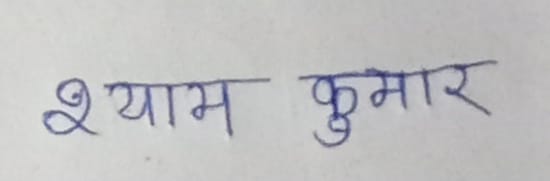 श्याम कुमार